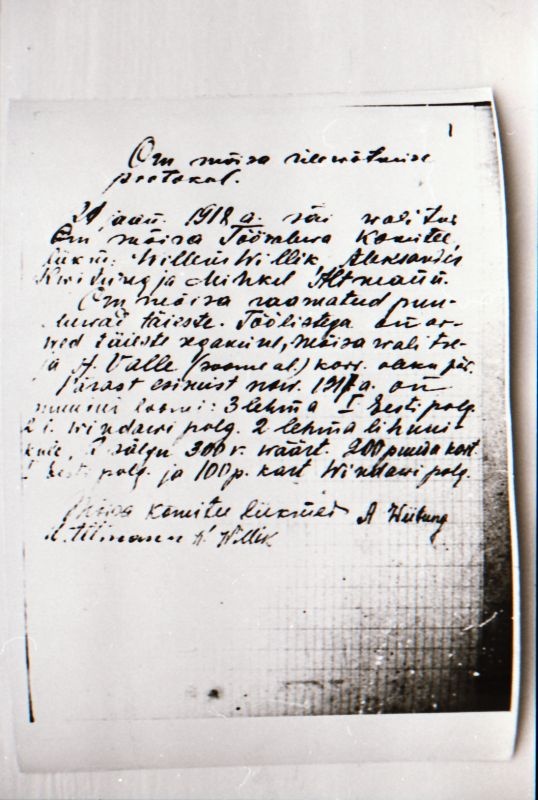 1
Om mõisa ülewõtmise
protokol.
21 jaan. 1918 a. sai walitus
Om mõisa Töörahwa Komitee,
liikm: Willem Willik, Aleksander
ja Mihkel Altmann.
Om mõisa raamatud puu-
duwad täieste. Töölistega on ar-
wed täieste segamini, mõisa walitse-
ja A. Valle (soome al.) korr. oleku pär.
Pärast esimest now. 1917 a. on
müüdi loomi: 3 lehma I Eesti polg.
2 i. Windawi polg. 2 lehma lihuni-
kule, 1 sälgu 300 r. wäärt. 200 puuda kart.
I Eesti polg. ja 100 p. kart Windawi polg.
Mõisa Komitee liikmed A Wiibung
Altmann W Willik